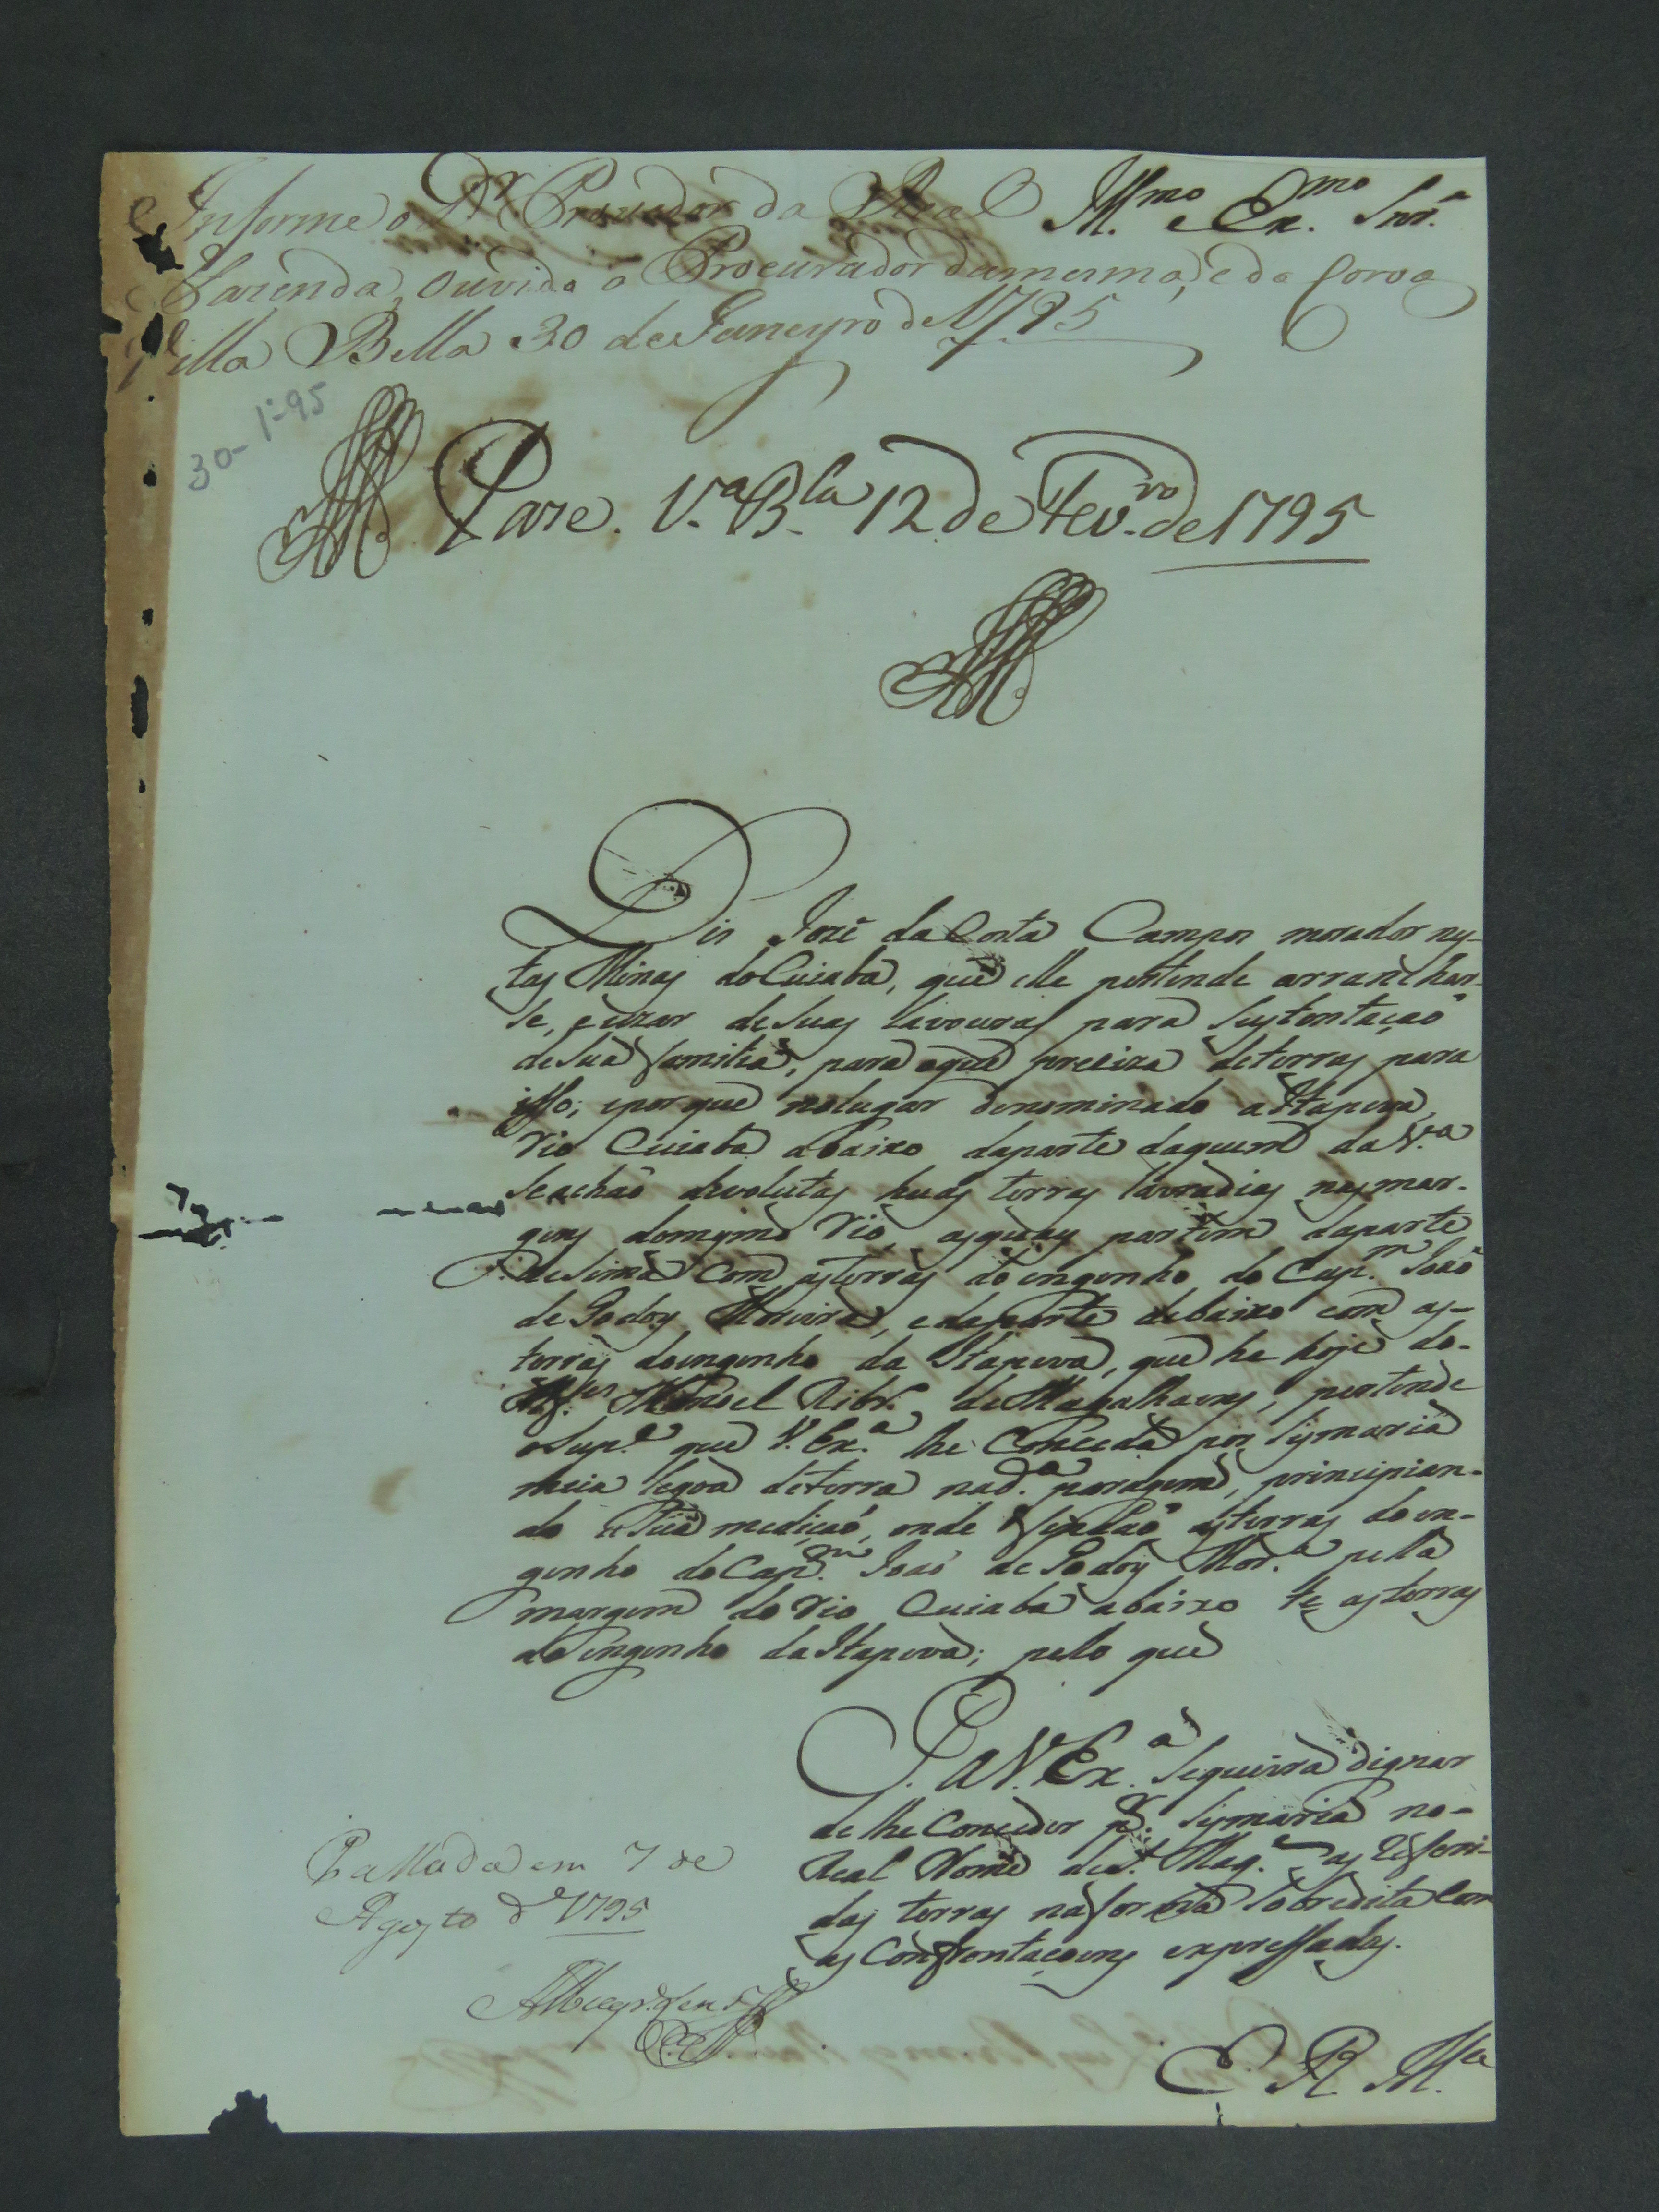 Informe o Dr. Provedor da Real
Fazenda, ouvido o Procurador damesma, e da Coroa
Villa Bella 30 de Janeyro de 1795
Illmo. e Exmo. Snr.
30-1º-95
Pace. V.a B.la 12 de Fev.ro de 1795
Dis Jozé da Costa Campos morador nes-
tas Minas do Cuiabá, que elle pertende arranchar-
se, e uzar de suas lavouras para sustentação
de sua familia, para oque preciza de terras para
isso; e porque no lugar denominado a Itapeva,
rio Cuiabá abaixo da parte daquem da V.a
se achaõ devolutas huas terras lavradias nas mar-
gens do mesmo rio, as quaes partem da parte
de sima com as terras do engenho do Cap.m Joaõ
de Godoy Moreira, e da parte debaixo com as-
terras do engenho da Itapeva, que he hoje do-
Alfer. Manoel Ribr.o de Magalhaens, pertende
o Sup.e que V. Ex.a lhe conceda por sismaria
meia legoa de terra na d.a paragem, principian-
do a sua mediçaõ, onde findaõ as terras do en-
genho do Cap.m Joaõ de Godoy Mor.a pella
margem do rio Cuiabá abaixo te as terras
do engenho da Itapeva; pelo que
P. a V. Ex.a se queira dignar
de lhe conceder p.r sismaria no-
Real Nome de S. Mag.e as referi-
das terras na forma sobredita com
as confrontaçoens expressadas.
Passada em 7 de
Agosto de 1795
E. R. M.ce